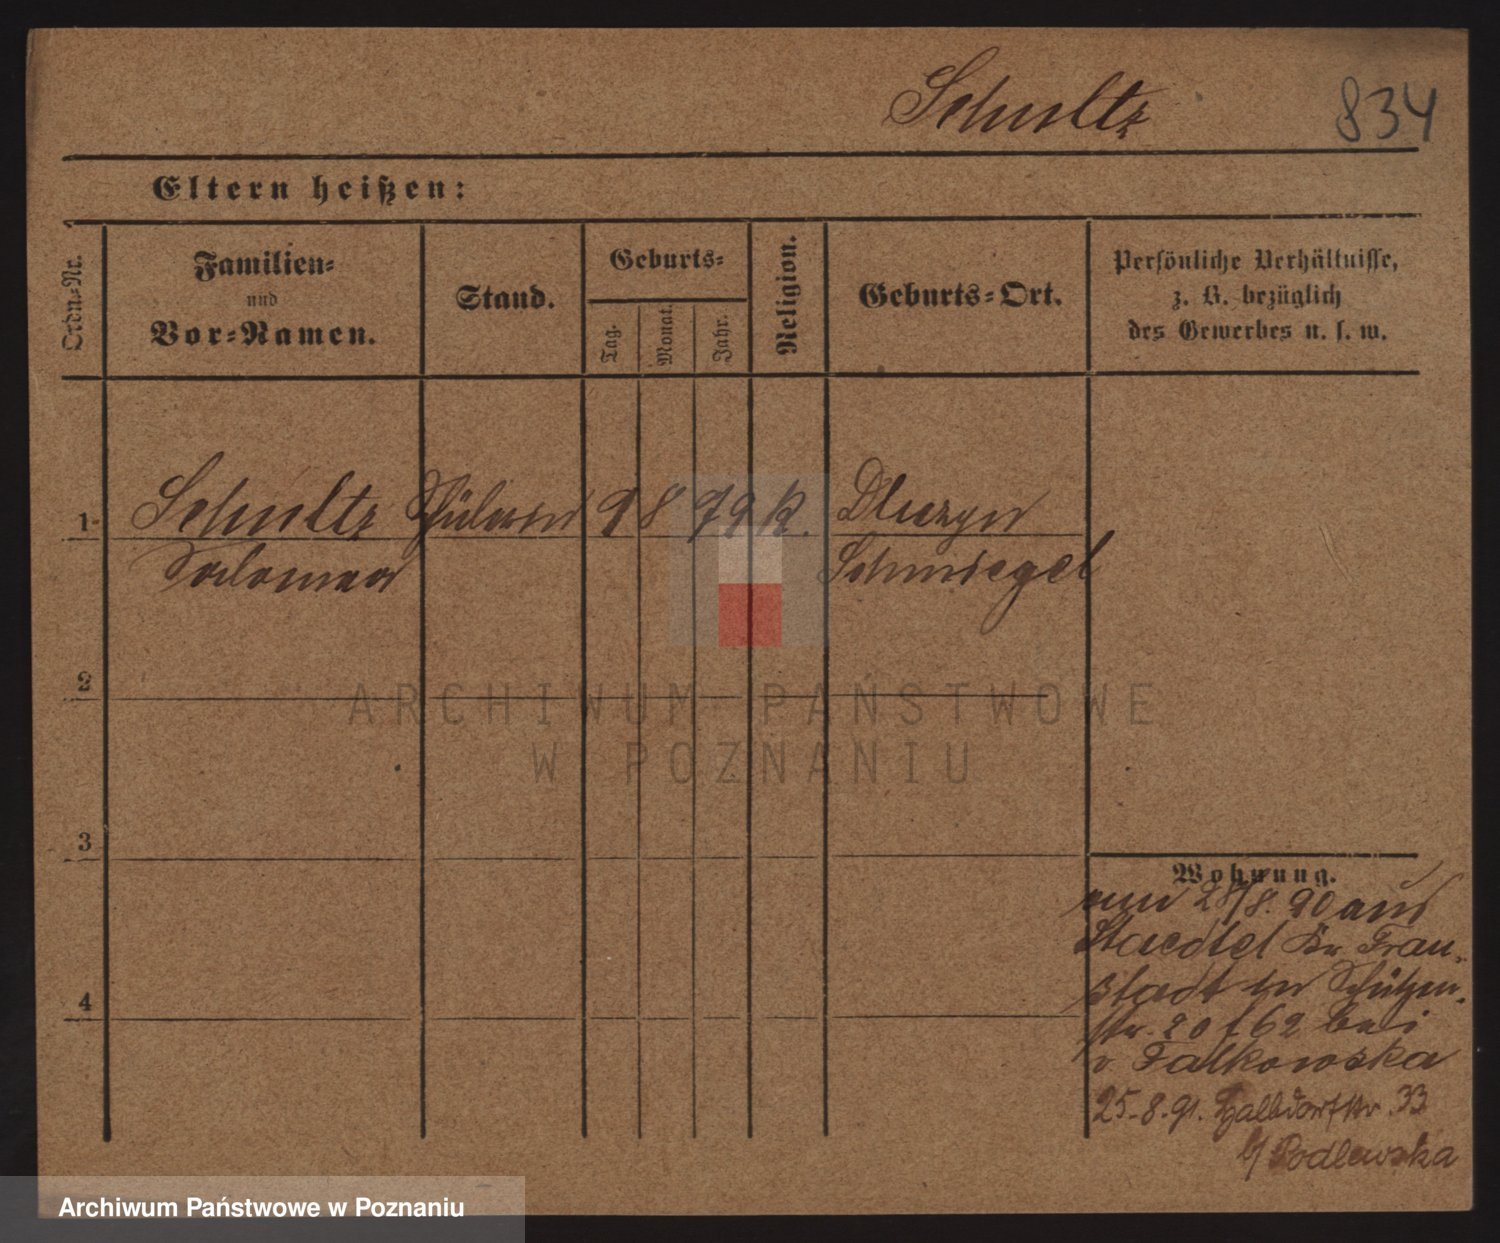 Schultz 834
Eltern heißen:
Ordn.-Nr.
Familien-
und
Vor-Namen.
Stand.
Geburts-
Tag.
Monat.
Jahr.
Religion.
Geburts-Ort.
Persönliche Verhältnisse,
z. B. bezüglich
des Gewerbes u. s. w.
1 Schultz Schülerin 9 8 79 k. Dluzyn
Salomea Schmiegel
2
3
4
Wohnung.
28/8. 90 aus
Staedtel Kr Frau-
stadt in Schützen-
str. 20 f 62 bei
v Falkowska
25.8.91. Halbdorfstr. 33
b/ Podlewska
ARCHIWUM PAŃSTWOWE
W POZNANIU
Archiwum Państwowe w Poznaniu